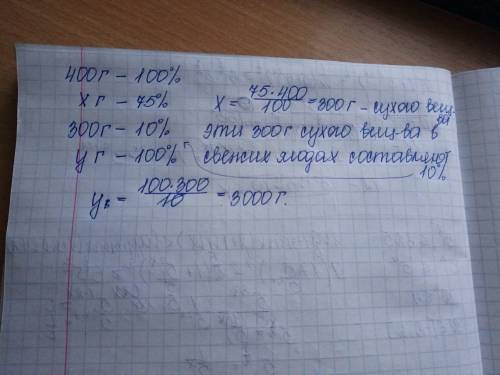 400г – 100%
х г – 75% х = 75·400/100 = 300г – сухого вещ-ва
300г – 10% эти 300г сухого вещ-ва в
у г – 100% свежих ягодах составляют 10%
у = 100·300/10 = 3000г.